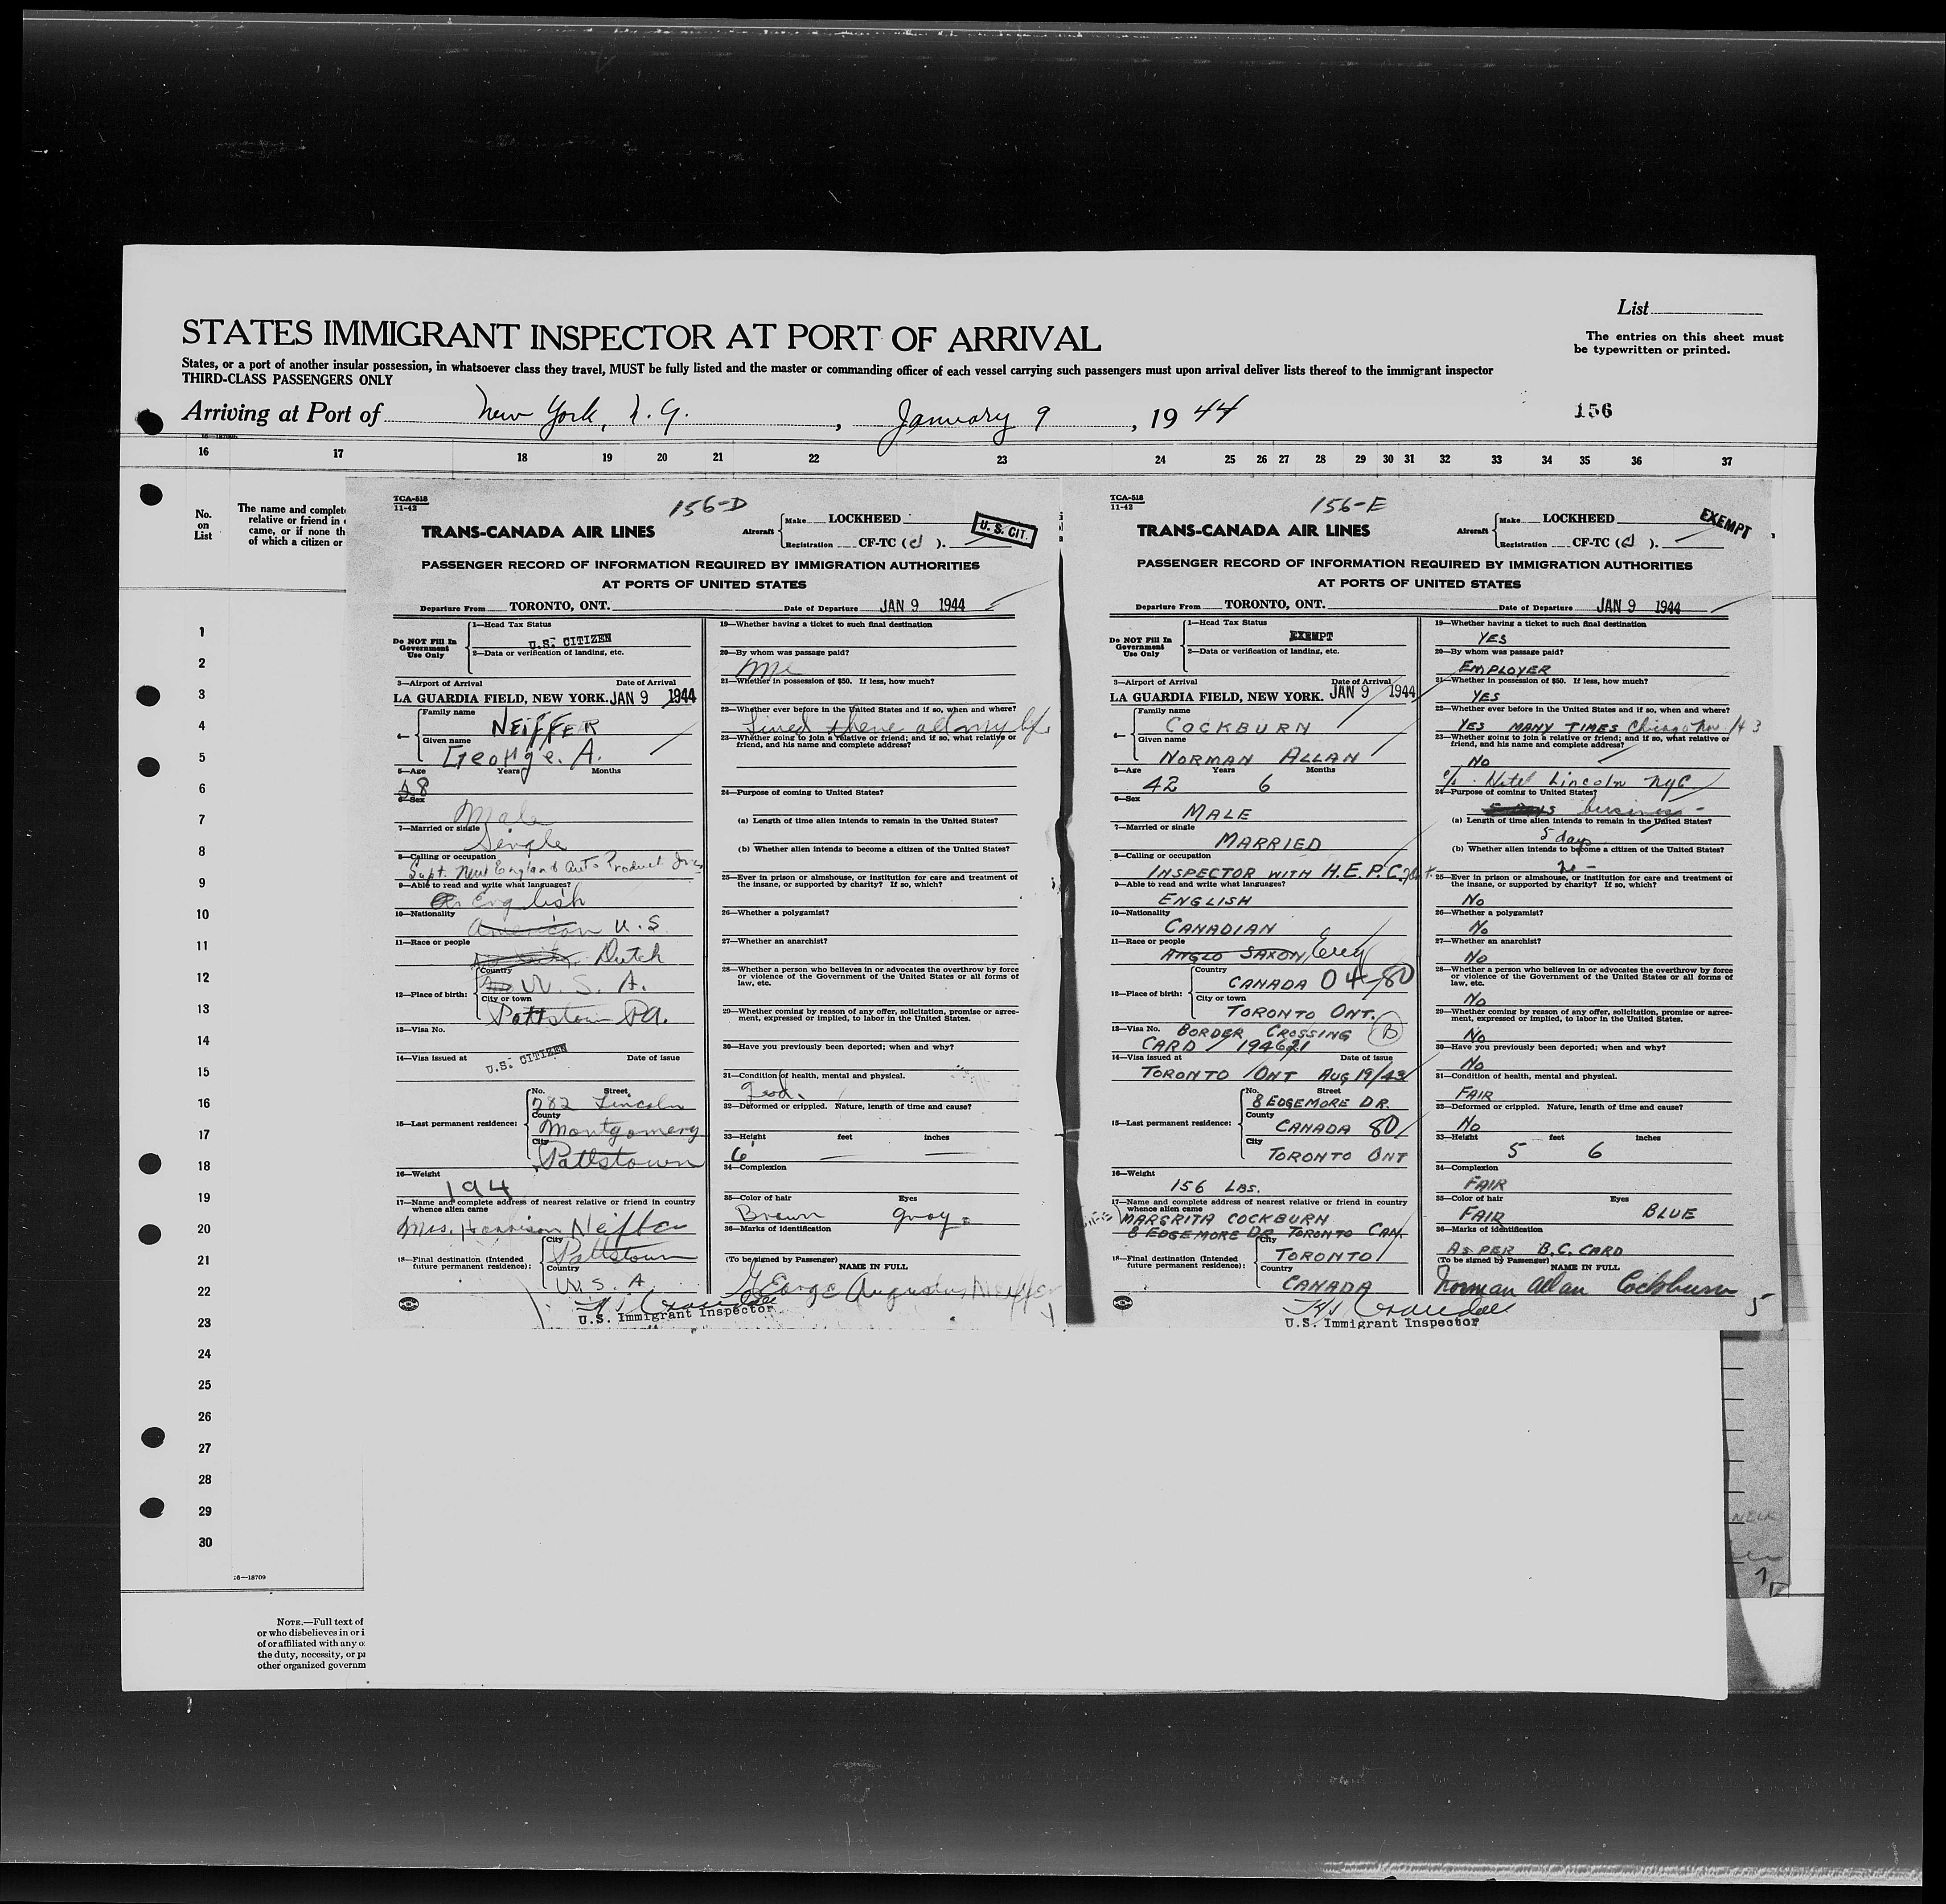 List
STATES IMMIGRANT INSPECTOR AT PORT OF ARRIVAL
The entries on this sheet must
be typewritten or printed.
States, or a port of another insular possession, in whatsoever class they travel, MUST be fully listed and the master or commanding officer of each vessel carrying such passengers must upon arrival deliver lists thereof to the immigrant inspector
THIRD-CLASS PASSENGERS ONLY
Arriving at Port of New York, N.Y., January 9, 1944
156
16 17 18 19 20 21 22 23 24 25 26 27 28 29 30 31 32 33 34 35 36 37
No.
on
List
The name and complete
relative or friend in
came, or if none th
of which a citizen or
1
2
3
4
5
6
7
8
9
10
11
12
13
14
15
16
17
18
19
20
21
22
23
24
25
26
27
28
29
30
16—18709
NOTE.—Full text of
or who disbelieves in or i
of or affiliated with any o
the duty, necessity, or p
other organized governm
TCA-518
11-42
156-D
TRANS-CANADA AIR LINES
Aircraft
Make LOCKHEED
Registration CF-TC (d).
U.S. CIT.
PASSENGER RECORD OF INFORMATION REQUIRED BY IMMIGRATION AUTHORITIES
AT PORTS OF UNITED STATES
Departure From TORONTO, ONT. Date of Departure JAN 9 1944
Do NOT Fill In
Government
Use Only
1—Head Tax Status
U.S. CITIZEN
2—Data or verification of landing, etc.
3—Airport of Arrival Date of Arrival
LA GUARDIA FIELD, NEW YORK. JAN 9 1944
4—
Family name
NEIFFER
Given name
George. A.
5—Age Years Months
6—Sex
Male
7—Married or single
Single
8—Calling or occupation
Supt. New England Auto Product
9—Able to read and write what languages?
English
10—Nationality
American U.S
11—Race or people
Dutch
12—Place of birth:
Country
U.S.A.
City or town
Pottstown Pa.
13—Visa No.
14—Visa issued at Date of issue
U.S. CITIZEN
15—Last permanent residence:
No. Street
782 Lincoln
County
Montgomery
City
Pottstown
16—Weight
194
17—Name and complete address of nearest relative or friend in country
whence alien came
Mrs. Harrison Neiffer
18—Final destination (Intended
future permanent residence):
City
Pottstown
Country
U.S.A
U.S. Immigrant Inspector
19—Whether having a ticket to such final destination
20—By whom was passage paid?
Me
21—Whether in possession of $50. If less, how much?
22—Whether ever before in the United States and if so, when and where?
Lived there all my life
23—Whether going to join a relative or friend; and if so, what relative or
friend, and his name and complete address?
24—Purpose of coming to United States?
(a) Length of time alien intends to remain in the United States?
(b) Whether alien intends to become a citizen of the United States?
25—Ever in prison or almshouse, or institution for care and treatment of
the insane, or supported by charity? If so, which?
26—Whether a polygamist?
27—Whether an anarchist?
28—Whether a person who believes in or advocates the overthrow by force
or violence of the Government of the United States or all forms of
law, etc.
29—Whether coming by reason of any offer, solicitation, promise or agree-
ment, expressed or implied, to labor in the United States.
30—Have you previously been deported; when and why?
31—Condition of health, mental and physical.
good.
32—Deformed or crippled. Nature, length of time and cause?
33—Height feet inches
6
34—Complexion
35—Color of hair Eyes
Brown gray
36—Marks of identification
(To be signed by Passenger)
NAME IN FULL
George Augustus Neiffer
TCA-518
11-42
156-E
TRANS-CANADA AIR LINES
Aircraft
Make LOCKHEED
Registration CF-TC (d).
EXEMPT
PASSENGER RECORD OF INFORMATION REQUIRED BY IMMIGRATION AUTHORITIES
AT PORTS OF UNITED STATES
Departure From TORONTO, ONT. Date of Departure JAN 9 1944
Do NOT Fill In
Government
Use Only
1—Head Tax Status
EXEMPT
2—Data or verification of landing, etc.
3—Airport of Arrival Date of Arrival
LA GUARDIA FIELD, NEW YORK. JAN 9 1944
4—
Family name
COCKBURN
Given name
NORMAN ALLAN
5—Age Years Months
42 6
6—Sex
MALE
7—Married or single
MARRIED
8—Calling or occupation
INSPECTOR WITH H.E.P.C.
9—Able to read and write what languages?
ENGLISH
10—Nationality
CANADIAN
11—Race or people
ANGLO SAXON
12—Place of birth:
Country
CANADA 04-80
City or town
TORONTO ONT.
13—Visa No. BORDER CROSSING (B)
CARD / 194621
14—Visa issued at Date of issue
TORONTO ONT AUG 19/43
15—Last permanent residence:
No. Street
8 EDGEMORE DR.
County
CANADA 80
City
TORONTO ONT
16—Weight
156 LBS.
17—Name and complete address of nearest relative or friend in country
whence alien came
MARGRITA COCKBURN
8 EDGEMORE DR TORONTO CAN.
18—Final destination (Intended
future permanent residence):
City
TORONTO
Country
CANADA
U.S. Immigrant Inspector
19—Whether having a ticket to such final destination
YES
20—By whom was passage paid?
EMPLOYER
21—Whether in possession of $50. If less, how much?
YES
22—Whether ever before in the United States and if so, when and where?
YES MANY TIMES Chicago Nov /43
23—Whether going to join a relative or friend; and if so, what relative or
friend, and his name and complete address?
NO
Hotel Lincoln NYC
24—Purpose of coming to United States?
business
(a) Length of time alien intends to remain in the United States?
5 days
(b) Whether alien intends to become a citizen of the United States?
no
25—Ever in prison or almshouse, or institution for care and treatment of
the insane, or supported by charity? If so, which?
NO
26—Whether a polygamist?
NO
27—Whether an anarchist?
NO
28—Whether a person who believes in or advocates the overthrow by force
or violence of the Government of the United States or all forms of
law, etc.
NO
29—Whether coming by reason of any offer, solicitation, promise or agree-
ment, expressed or implied, to labor in the United States.
NO
30—Have you previously been deported; when and why?
NO
31—Condition of health, mental and physical.
FAIR
32—Deformed or crippled. Nature, length of time and cause?
NO
33—Height feet inches
5 6
34—Complexion
FAIR
35—Color of hair Eyes
FAIR BLUE
36—Marks of identification
AS PER B.C. CARD
(To be signed by Passenger)
NAME IN FULL
Norman Allan Cockburn
5